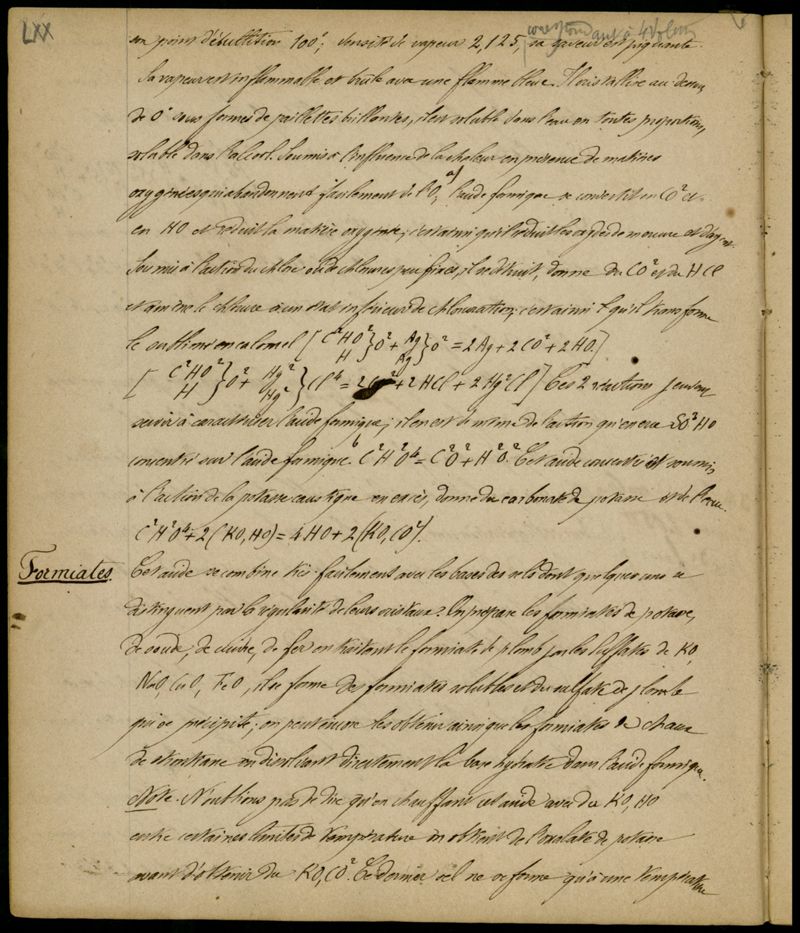 LXX
correspondant à 4 Vol.
son point d'ébullition 100°; densité de vapeur 2,125, sa saveur est piquante.
Sa vapeur est inflammable et brûle avec une flamme bleue. Il cristallise au dessous
de 0° sous formes de paillettes brillantes, il est soluble dans l'eau en toutes proportions,
soluble dans l'alcool. Soumis à l'influence de la chaleur en présence de matières
oxygénées qui abandonnent facilement de l'O, l'acide formique se convertit en CO² et
en HO et réduit la matière oxygénée; c'est ainsi qu'il réduit les oxydes de mercure et d'argent.
Soumis à l'action du chlore ou de chlorures peu fixes, il se détruit, donne du CO² et du HCl
et amène le chlorure à un état inférieur de chloruration; c'est ainsi qu'il transforme
le sublimé en calomel [C²HO² H } O² + Ag Ag } O² = 2Ag + 2CO² + 2HO.]
[C²HO² H } O² + Hg² Hg² } Cl⁴ = 2CO² + 2HCl + 2Hg²Cl] Ces 2 réactions peuvent
servir à caractériser l'acide formique; il en est de même de l'action qu'exerce SO³HO
concentré sur l'acide formique. C²H²O⁴ = C²O² + H²O². Cet acide concentré et soumis
à l'action de la potasse caustique en excès, donne du carbonate de potasse et de l'eau.
C²H²O⁴ + 2(KO,HO) = 4HO + 2(KO,CO²).
Formiates. Cet acide se combine très facilement avec les bases des sels dont quelques uns se
distinguent par la régularité de leurs cristaux. On prépare les formiates de potasse,
de soude, de cuivre, de fer en traitant le formiate de plomb par les sulfates de KO,
NaO, CuO, FeO, il se forme des formiates solubles et du sulfate de plomb
qui se précipite; on peut encore les obtenir ainsi que les formiates de chaux
de strontiane en dissolvant directement la base hydratée dans l'acide formique.
Note. N'oublions pas de dire qu'en chauffant cet acide avec du KO,HO
entre certaines limites de température on obtient de l'oxalate de potasse
avant d'obtenir du KO,CO². Ce dernier sel ne se forme qu'à une température